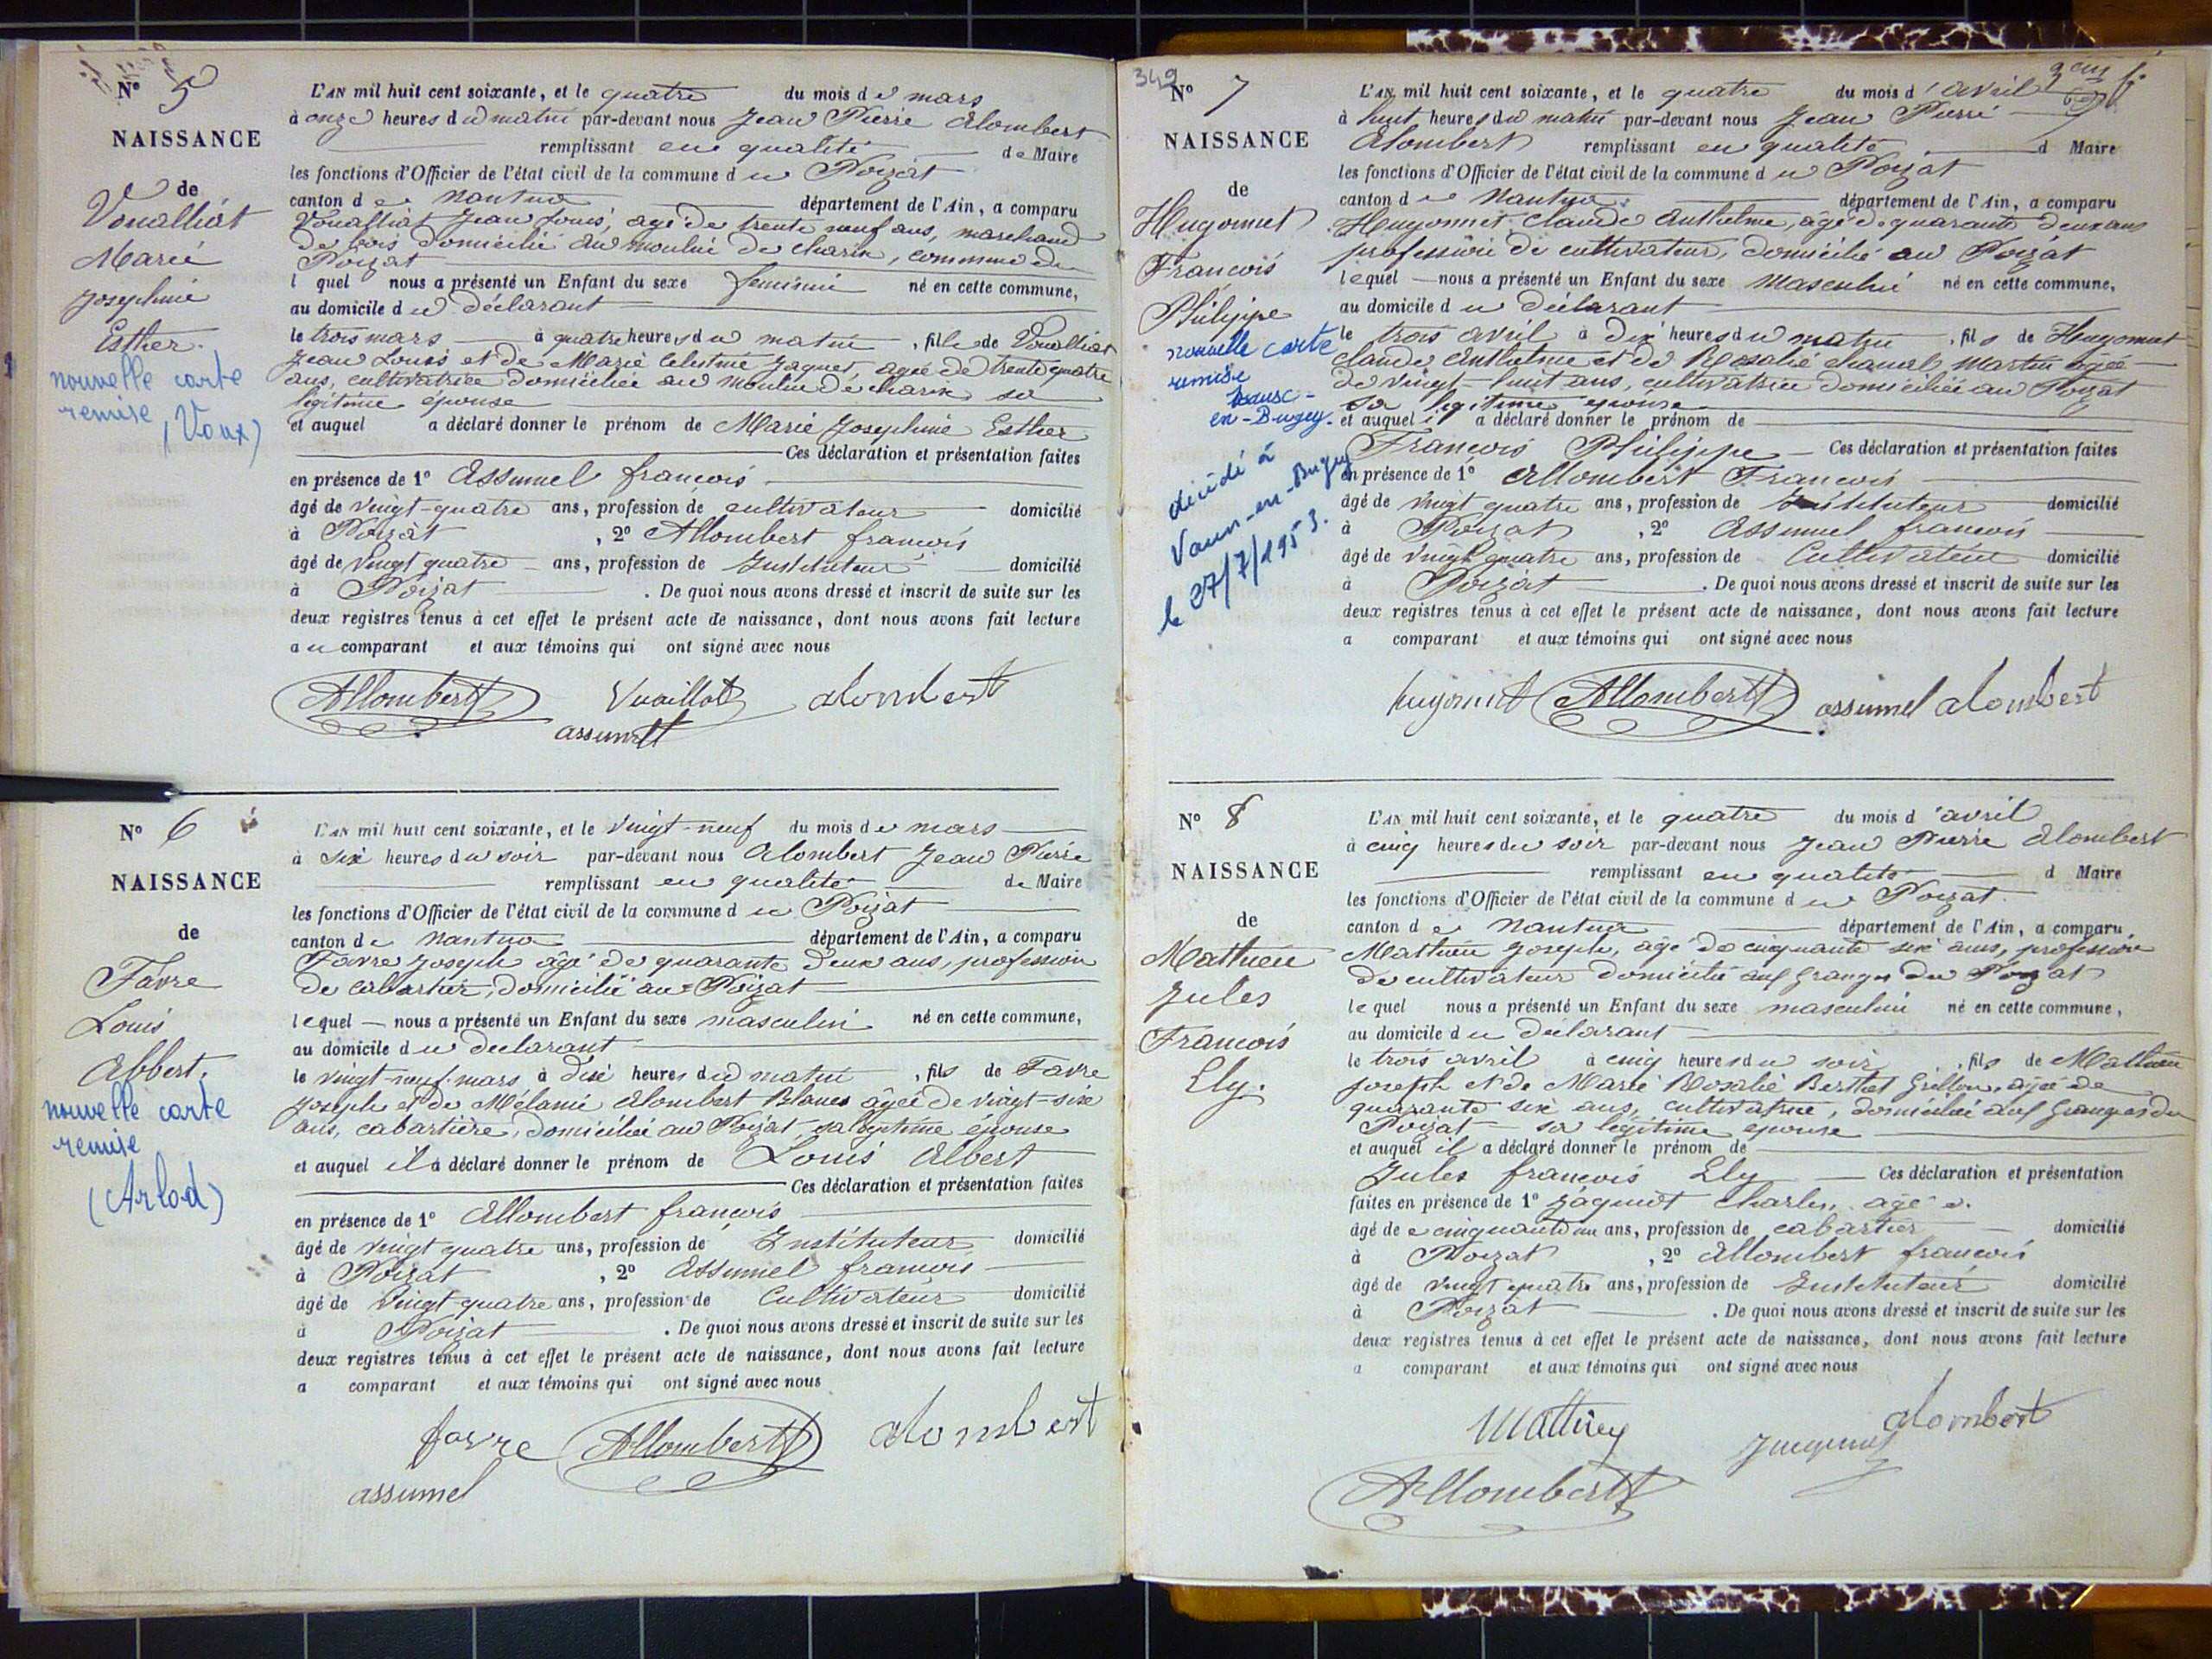 N° 5
NAISSANCE
de
Voualliat
Marie
Josephine
Esther.
nouvelle carte
remise
(Vaux)
L'AN mil huit cent soixante, et le quatre du mois de mars
à onze heures du matin par-devant nous Jean Pierre Alombert
remplissant en qualité de Maire
les fonctions d'Officier de l'état civil de la commune du Poizat
canton de Nantua département de l'Ain, a comparu
Voualliat Jean Louis, agé de trente neuf ans, marchand
de bois domicilié au moulin de charix, commune du
Poizat
l quel nous a présenté un Enfant du sexe feminin né en cette commune,
au domicile du déclarant
le trois mars à quatre heures du matin, fille de Voualliat
Jean Louis et de Marie Celestine Jaquet, agée de trente quatre
ans, cultivatrice domiciliée au moulin de charix sa
légitime épouse
et auquel a déclaré donner le prénom de Marie Josephine Esther
Ces déclaration et présentation faites
en présence de 1° Assumel francois
âgé de vingt-quatre ans, profession de cultivateur domicilié
à Poizat, 2° Allombert francois
âgé de vingt quatre ans, profession de Instituteur domicilié
à Poizat. De quoi nous avons dressé et inscrit de suite sur les
deux registres tenus à cet effet le présent acte de naissance, dont nous avons fait lecture
au comparant et aux témoins qui ont signé avec nous
Allombert Vuaillat alombert
assumel
N° 6
NAISSANCE
de
Favre
Louis
Albert.
nouvelle carte
remise
(Arlod)
L'AN mil huit cent soixante, et le vingt-neuf du mois de mars
à six heures du soir par-devant nous Alombert Jean Pierre
remplissant en qualité de Maire
les fonctions d'Officier de l'état civil de la commune du Poizat
canton de Nantua département de l'Ain, a comparu
Favre Joseph âgé de quarante deux ans, profession
de cabartier, domicilié au Poizat
lequel nous a présenté un Enfant du sexe masculin né en cette commune,
au domicile du declarant
le vingt-neuf mars à dix heures du matin, fils de Favre
Joseph et de Mélanie Alombert Blanc âgée de vingt-six
ans, cabartière, domiciliée au Poizat sa légitime épouse
et auquel il a déclaré donner le prénom de Louis Albert
Ces déclaration et présentation faites
en présence de 1° Allombert francois
âgé de vingt quatre ans, profession de Instituteur domicilié
à Poizat, 2° Assumel francois
âgé de vingt-quatre ans, profession de Cultivateur domicilié
à Poizat. De quoi nous avons dressé et inscrit de suite sur les
deux registres tenus à cet effet le présent acte de naissance, dont nous avons fait lecture
a comparant et aux témoins qui ont signé avec nous
favre Allombert alombert
assumel
349
N° 7
NAISSANCE
de
Hugonnet
Francois
Philippe
nouvelle carte
remise
en-Bugey.
décédé à
Vaux-en-Bugey
le 27/7/1953.
L'AN mil huit cent soixante, et le quatre du mois d'avril
à huit heures du matin par-devant nous Jean Pierre
Alombert remplissant en qualité d Maire
les fonctions d'Officier de l'état civil de la commune du Poizat
canton de Nantua département de l'Ain, a comparu
Hugonnet Claude Anthelme, âgé de quarante deux ans
profession de cultivateur, domicilié au Poizat
lequel nous a présenté un Enfant du sexe Masculin né en cette commune,
au domicile du déclarant
le trois avril à dix heures du matin, fils de Hugonnet
Claude Anthelme et de Rosalie chanal Martin agée
de vingt-huit ans, cultivatrice domiciliée au Poizat
sa legitime epouse
et auquel il a déclaré donner le prénom de
Francois Philippe Ces déclaration et présentation faites
en présence de 1° Allombert Francois
âgé de vingt quatre ans, profession de Instituteur domicilié
à Poizat, 2° Assumel francois
âgé de vingt quatre ans, profession de Cultivateur domicilié
à Poizat. De quoi nous avons dressé et inscrit de suite sur les
deux registres tenus à cet effet le présent acte de naissance, dont nous avons fait lecture
a comparant et aux témoins qui ont signé avec nous
hugonnet Allombert assumel alombert
N° 8
NAISSANCE
de
Mathieu
Jules
Francois
Ely.
L'AN mil huit cent soixante, et le quatre du mois d'avril
à cinq heures du soir par-devant nous Jean Pierre Alombert
remplissant en qualité d Maire
les fonctions d'Officier de l'état civil de la commune du Poizat.
canton de Nantua département de l'Ain, a comparu
Mathieu Joseph, agé de cinquante six ans, profession
de cultivateur domicilié aux Granges du Poizat
lequel nous a présenté un Enfant du sexe masculin né en cette commune,
au domicile du declarant
le trois avril à cinq heures du soir, fils de Mathieu
Joseph et de Marie Rosalie Berthet Grillon, agée de
quarante six ans, cultivatrice, domiciliée aux Granges du
Poizat sa légitime epouse
et auquel il a déclaré donner le prénom de
Jules francois Ely Ces déclaration et présentation
faites en présence de 1° Jaquiot Charles, agé d.
âgé de cinquante un ans, profession de cabartier domicilié
à Poizat, 2° Allombert francois
âgé de vingt quatre ans, profession de Instituteur domicilié
à Poizat. De quoi nous avons dressé et inscrit de suite sur les
deux registres tenus à cet effet le présent acte de naissance, dont nous avons fait lecture
a comparant et aux témoins qui ont signé avec nous
alombert
Allombert